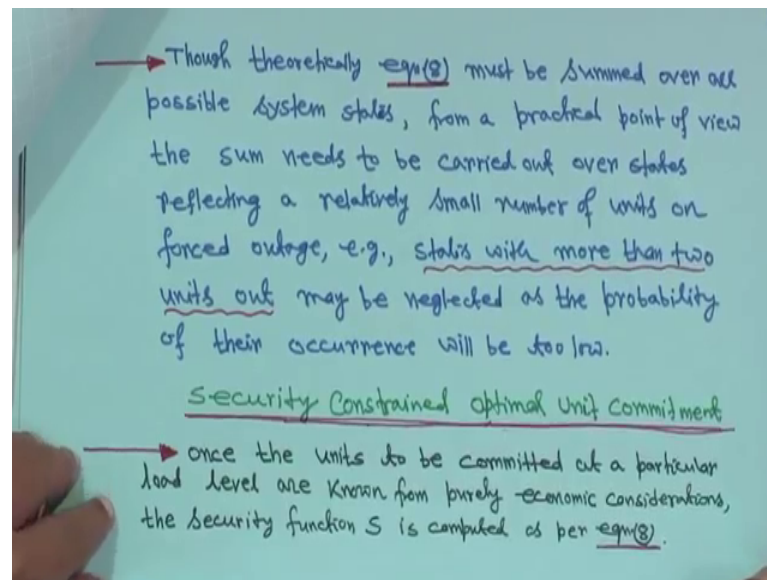 Though theoretically eqn(8) must be summed over all
possible system states, from a practical point of view
the sum needs to be carried out over states
reflecting a relatively small number of units on
forced outage, e.g., states with more than two
units out may be neglected as the probability
of their occurrence will be too low.
Security Constrained Optimal Unit Commitment
Once the units to be committed at a particular
load level are known from purely economic considerations,
the security function S is computed as per eqn(8).